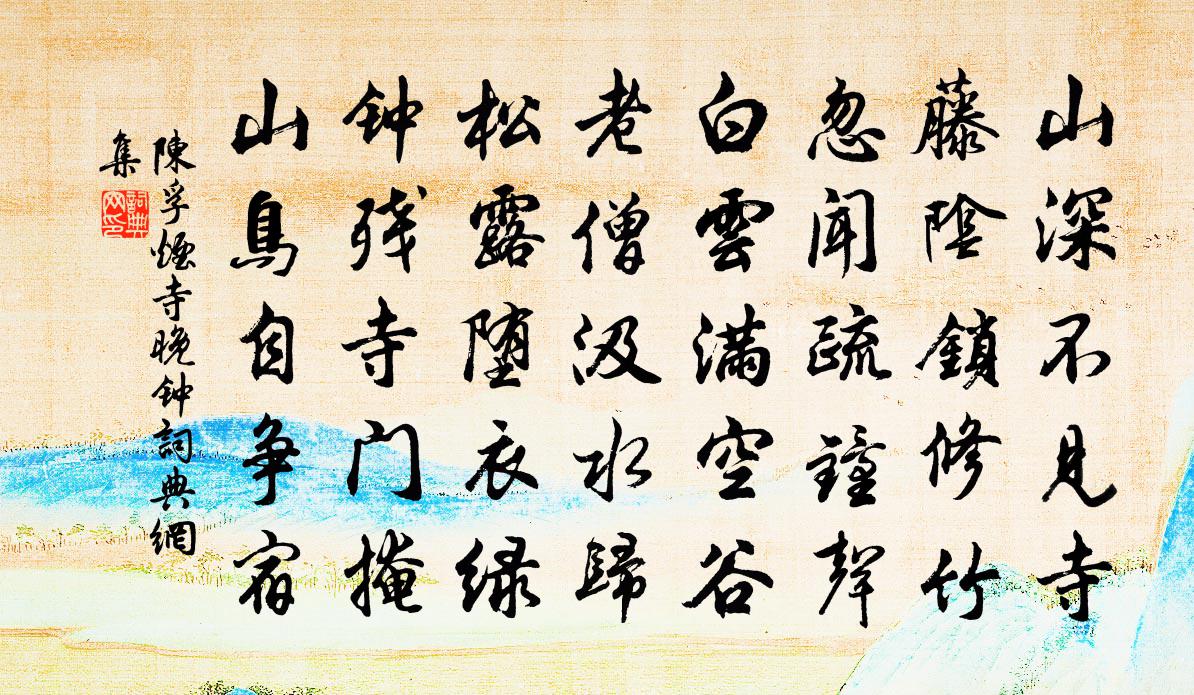 山深不見寺
藤陰鎖修竹
忽聞疏鐘聲
白雲滿空谷
老僧汲水歸
松露堕衣绿
钟残寺门掩
山鳥自争宿
陳孚烟寺晚钟詞典網
集
詞典網印